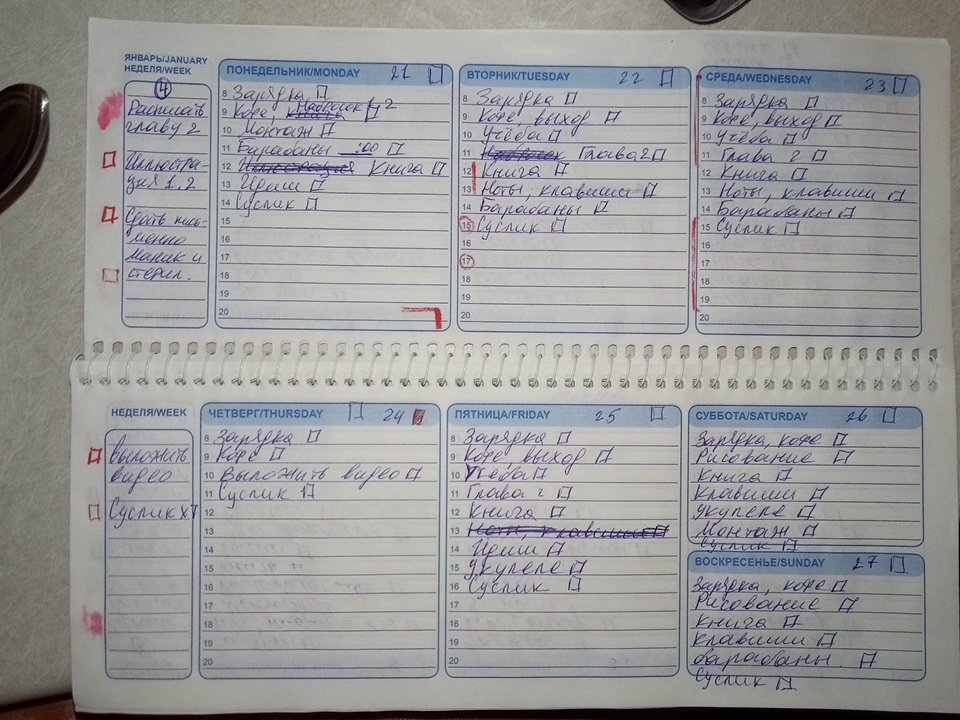 ЯНВАРЬ/JANUARY
НЕДЕЛЯ/WEEK
4
Расписать
главу 2
Иллюстра-
ция 1, 2
Сдать пись-
менно
маник и
стерил.
ПОНЕДЕЛЬНИК/MONDAY 21
8 Зарядка
9 Кофе, 1, 2
10 Монтаж
11 Барабаны :00
12 Книга
13 Идиш
14 Суслик
15
16
17
18
19
20
ВТОРНИК/TUESDAY 22
8 Зарядка
9 Кофе, выход
10 Учёба
11 Глава 2
12 Книга
13 Ноты, клавиши
14 Барабаны
15 Суслик
16
17
18
19
20
СРЕДА/WEDNESDAY 23
8 Зарядка
9 Кофе, выход
10 Учёба
11 Глава 2
12 Книга
13 Ноты, клавиши
14 Барабаны
15 Суслик
16
17
18
19
20
НЕДЕЛЯ/WEEK
Выложить
видео
Суслик х7
ЧЕТВЕРГ/THURSDAY 24
8 Зарядка
9 Кофе
10 Выложить видео
11 Суслик
12
13
14
15
16
17
18
19
20
ПЯТНИЦА/FRIDAY 25
8 Зарядка
9 Кофе, выход
10 Учёба
11 Глава 2
12 Книга
13 Ноты, клавиши
14 Идиш
15 Укулеле
16 Суслик
17
18
19
20
СУББОТА/SATURDAY 26
Зарядка, кофе
Рисование
Книга
Клавиши
Укулеле
Монтаж
Суслик
ВОСКРЕСЕНЬЕ/SUNDAY 27
Зарядка, кофе
Рисование
Книга
Клавиши
барабаны.
Суслик